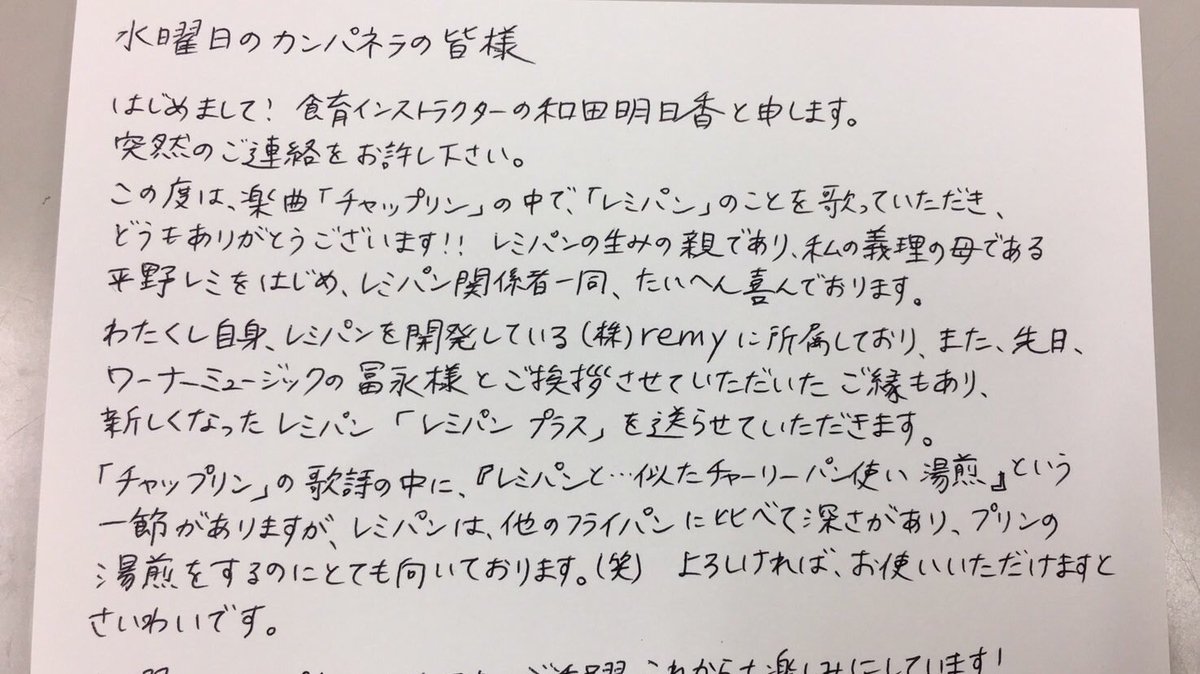 水曜日のカンパネラの皆様
はじめまして! 食育インストラクターの和田明日香と申します。
突然のご連絡をお許し下さい。
この度は、楽曲「チャップリン」の中で、「レミパン」のことを歌っていただき、
どうもありがとうございます!! レミパンの生みの親であり、私の義理の母である
平野レミをはじめ、レミパン関係者一同、たいへん喜んでおります。
わたくし自身、レミパンを開発している(株)remyに所属しており、また、先日、
ワーナーミュージックの冨永様とご挨拶させていただいたご縁もあり、
新しくなったレミパン「レミパン プラス」を送らせていただきます。
「チャップリン」の歌詩の中に、『レミパンと…似たチャーリーパン使い 湯煎』という
一節がありますが、レミパンは、他のフライパンに比べて深さがあり、プリンの
湯煎をするのにとても向いております。(笑) よろしければ、お使いいただけますと
さいわいです。
ご活躍、これからも楽しみにしています!